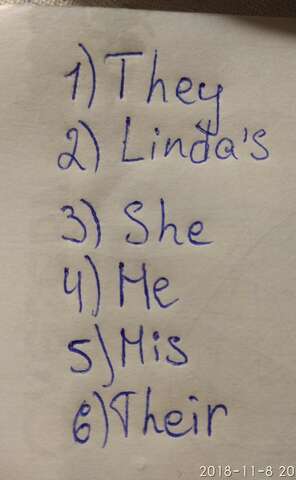 1) They
2) Linda's
3) She
4) He
5) His
6) Their
2018-11-8 20